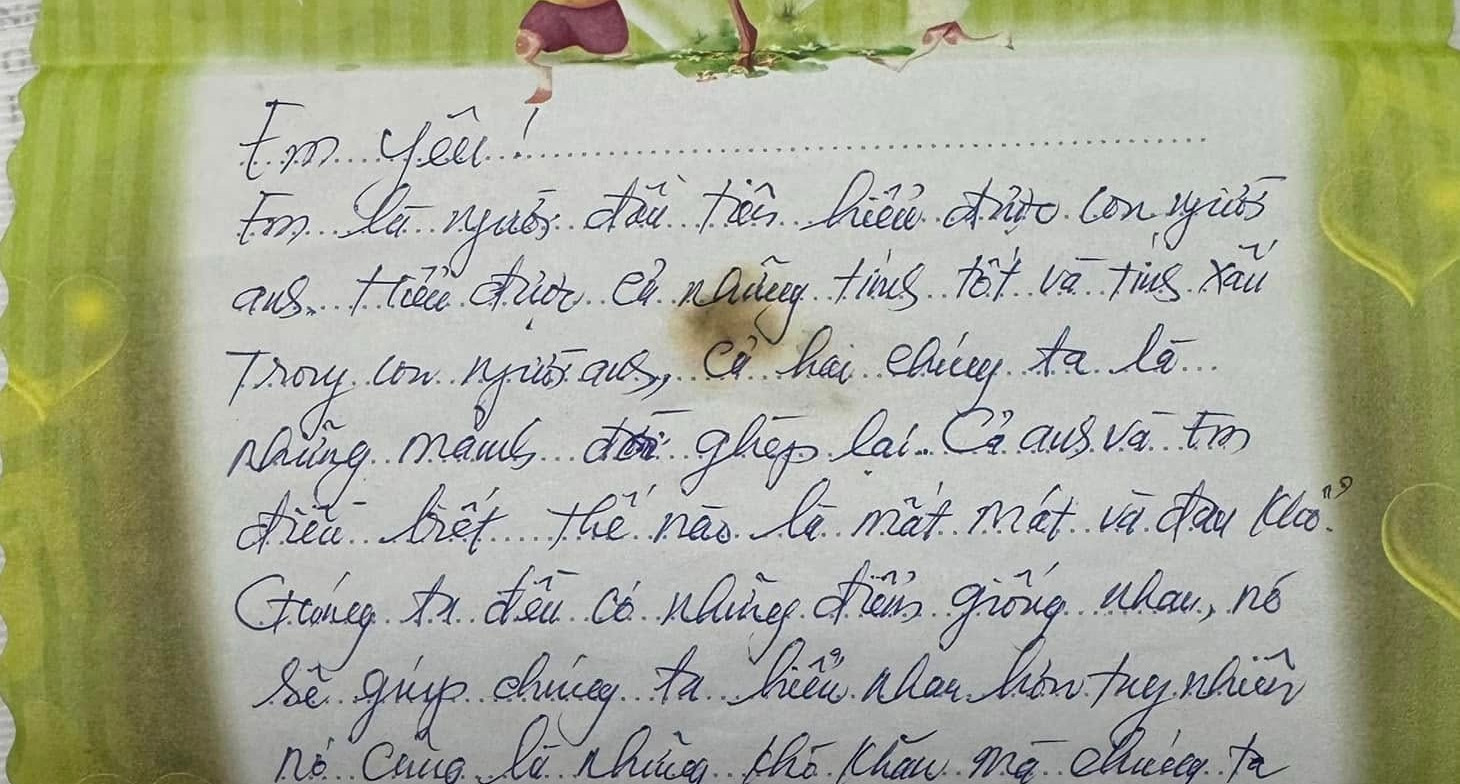 Em yêu!
Em là người đầu tiên hiểu được con người
anh. Hiểu được cả những tính tốt và tính xấu
trong con người anh, cả hai chúng ta là
những mảnh đời ghép lại. Cả anh và Em
điều biết thế nào là mất mát và đau khổ.
Chúng ta đều có những điểm giống nhau, nó
sẽ giúp chúng ta hiểu nhau hơn tuy nhiên
nó cũng là những khó khăn mà chúng ta